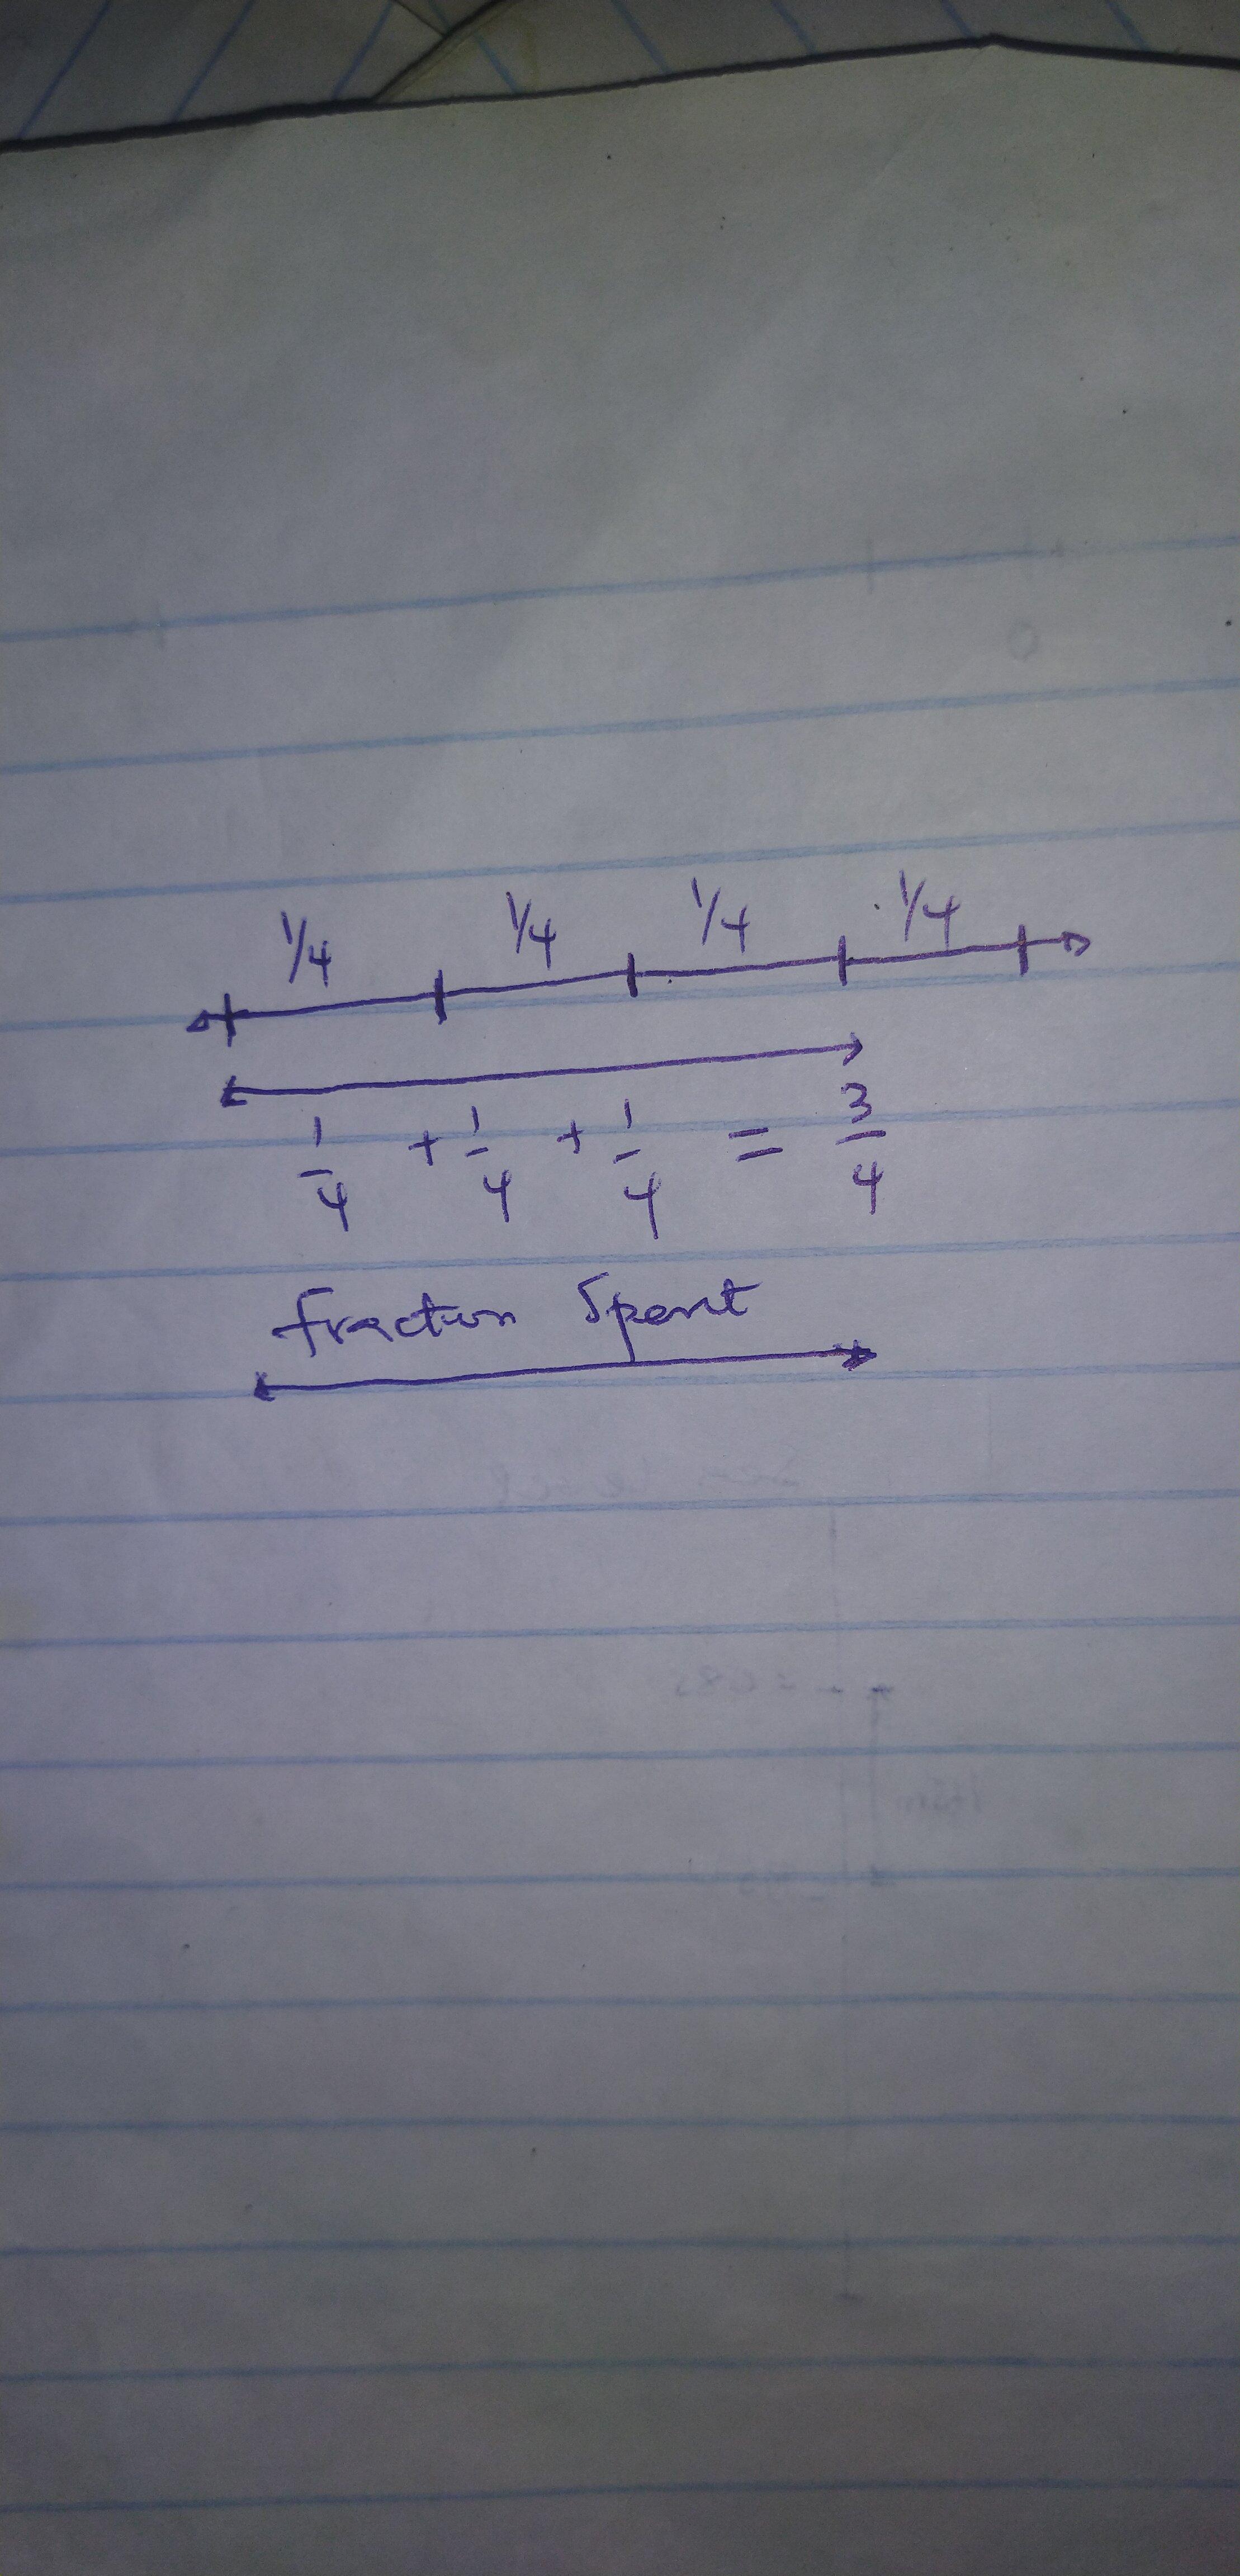 1/4 1/4 1/4 1/4
1/4 + 1/4 + 1/4 = 3/4
fraction Spent